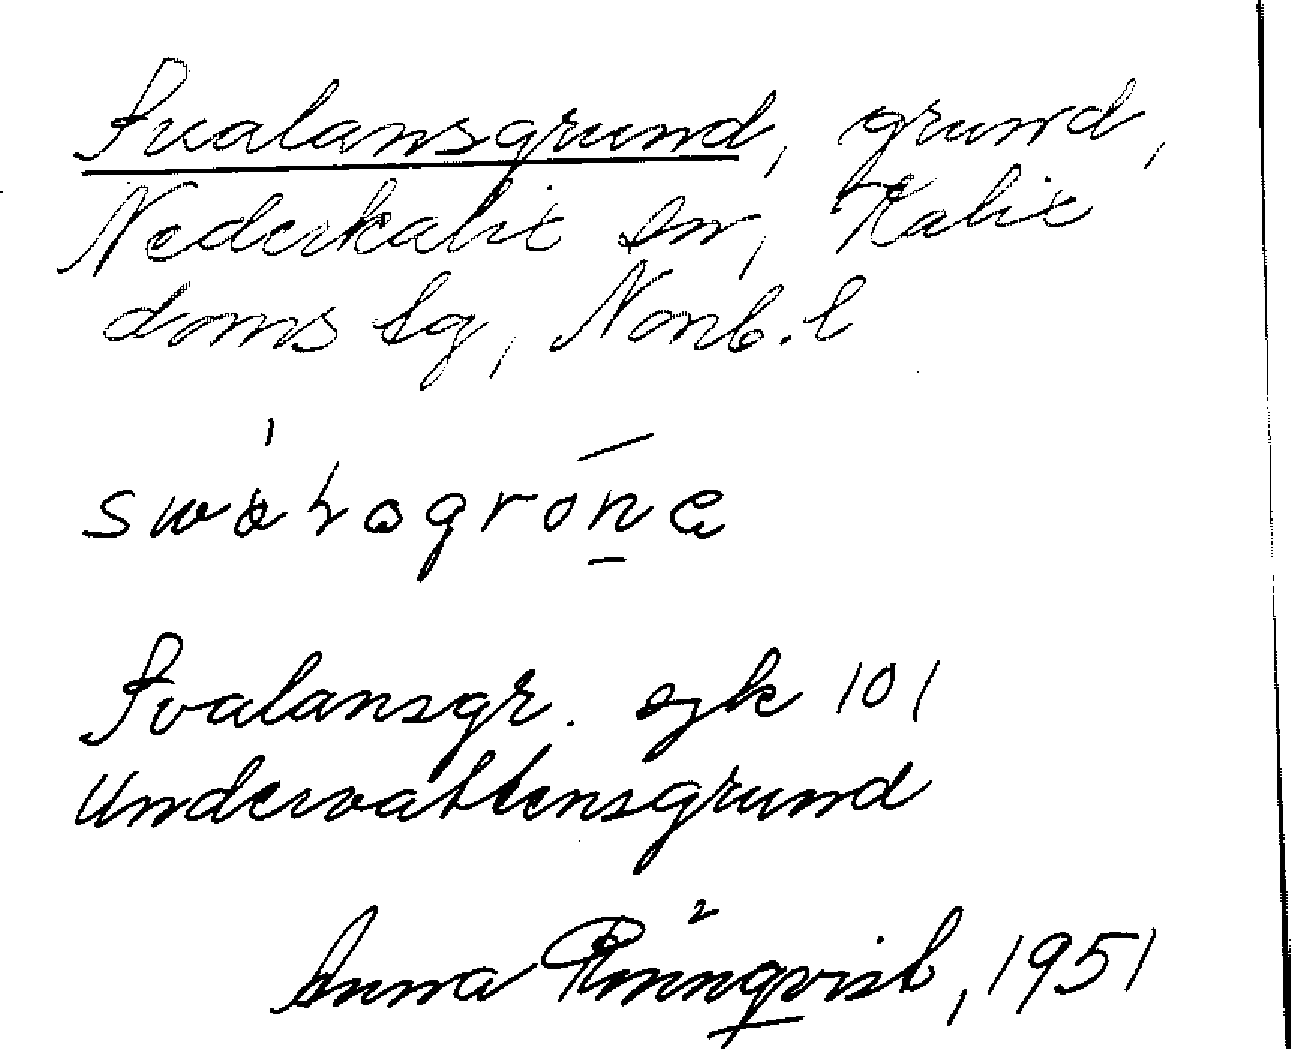 Svalansgrund, grund,
Nederkalix sn, Kalix
doms lg, Norrb. l
Svalansgr. sjk 101
Undervattensgrund
Anna Rönnqvist, 1951